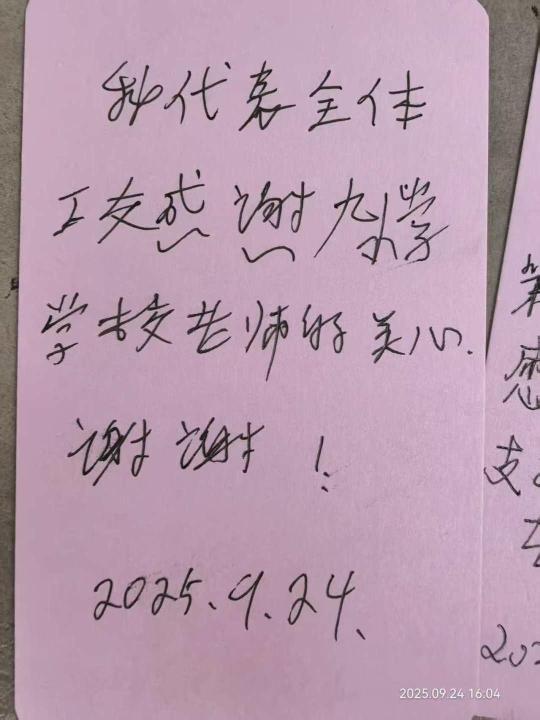 我代表全体
工友感谢九小学
学校老师的关心.
谢谢!
2025.9.24.
第
感
支
202
2025.09.24 16:04